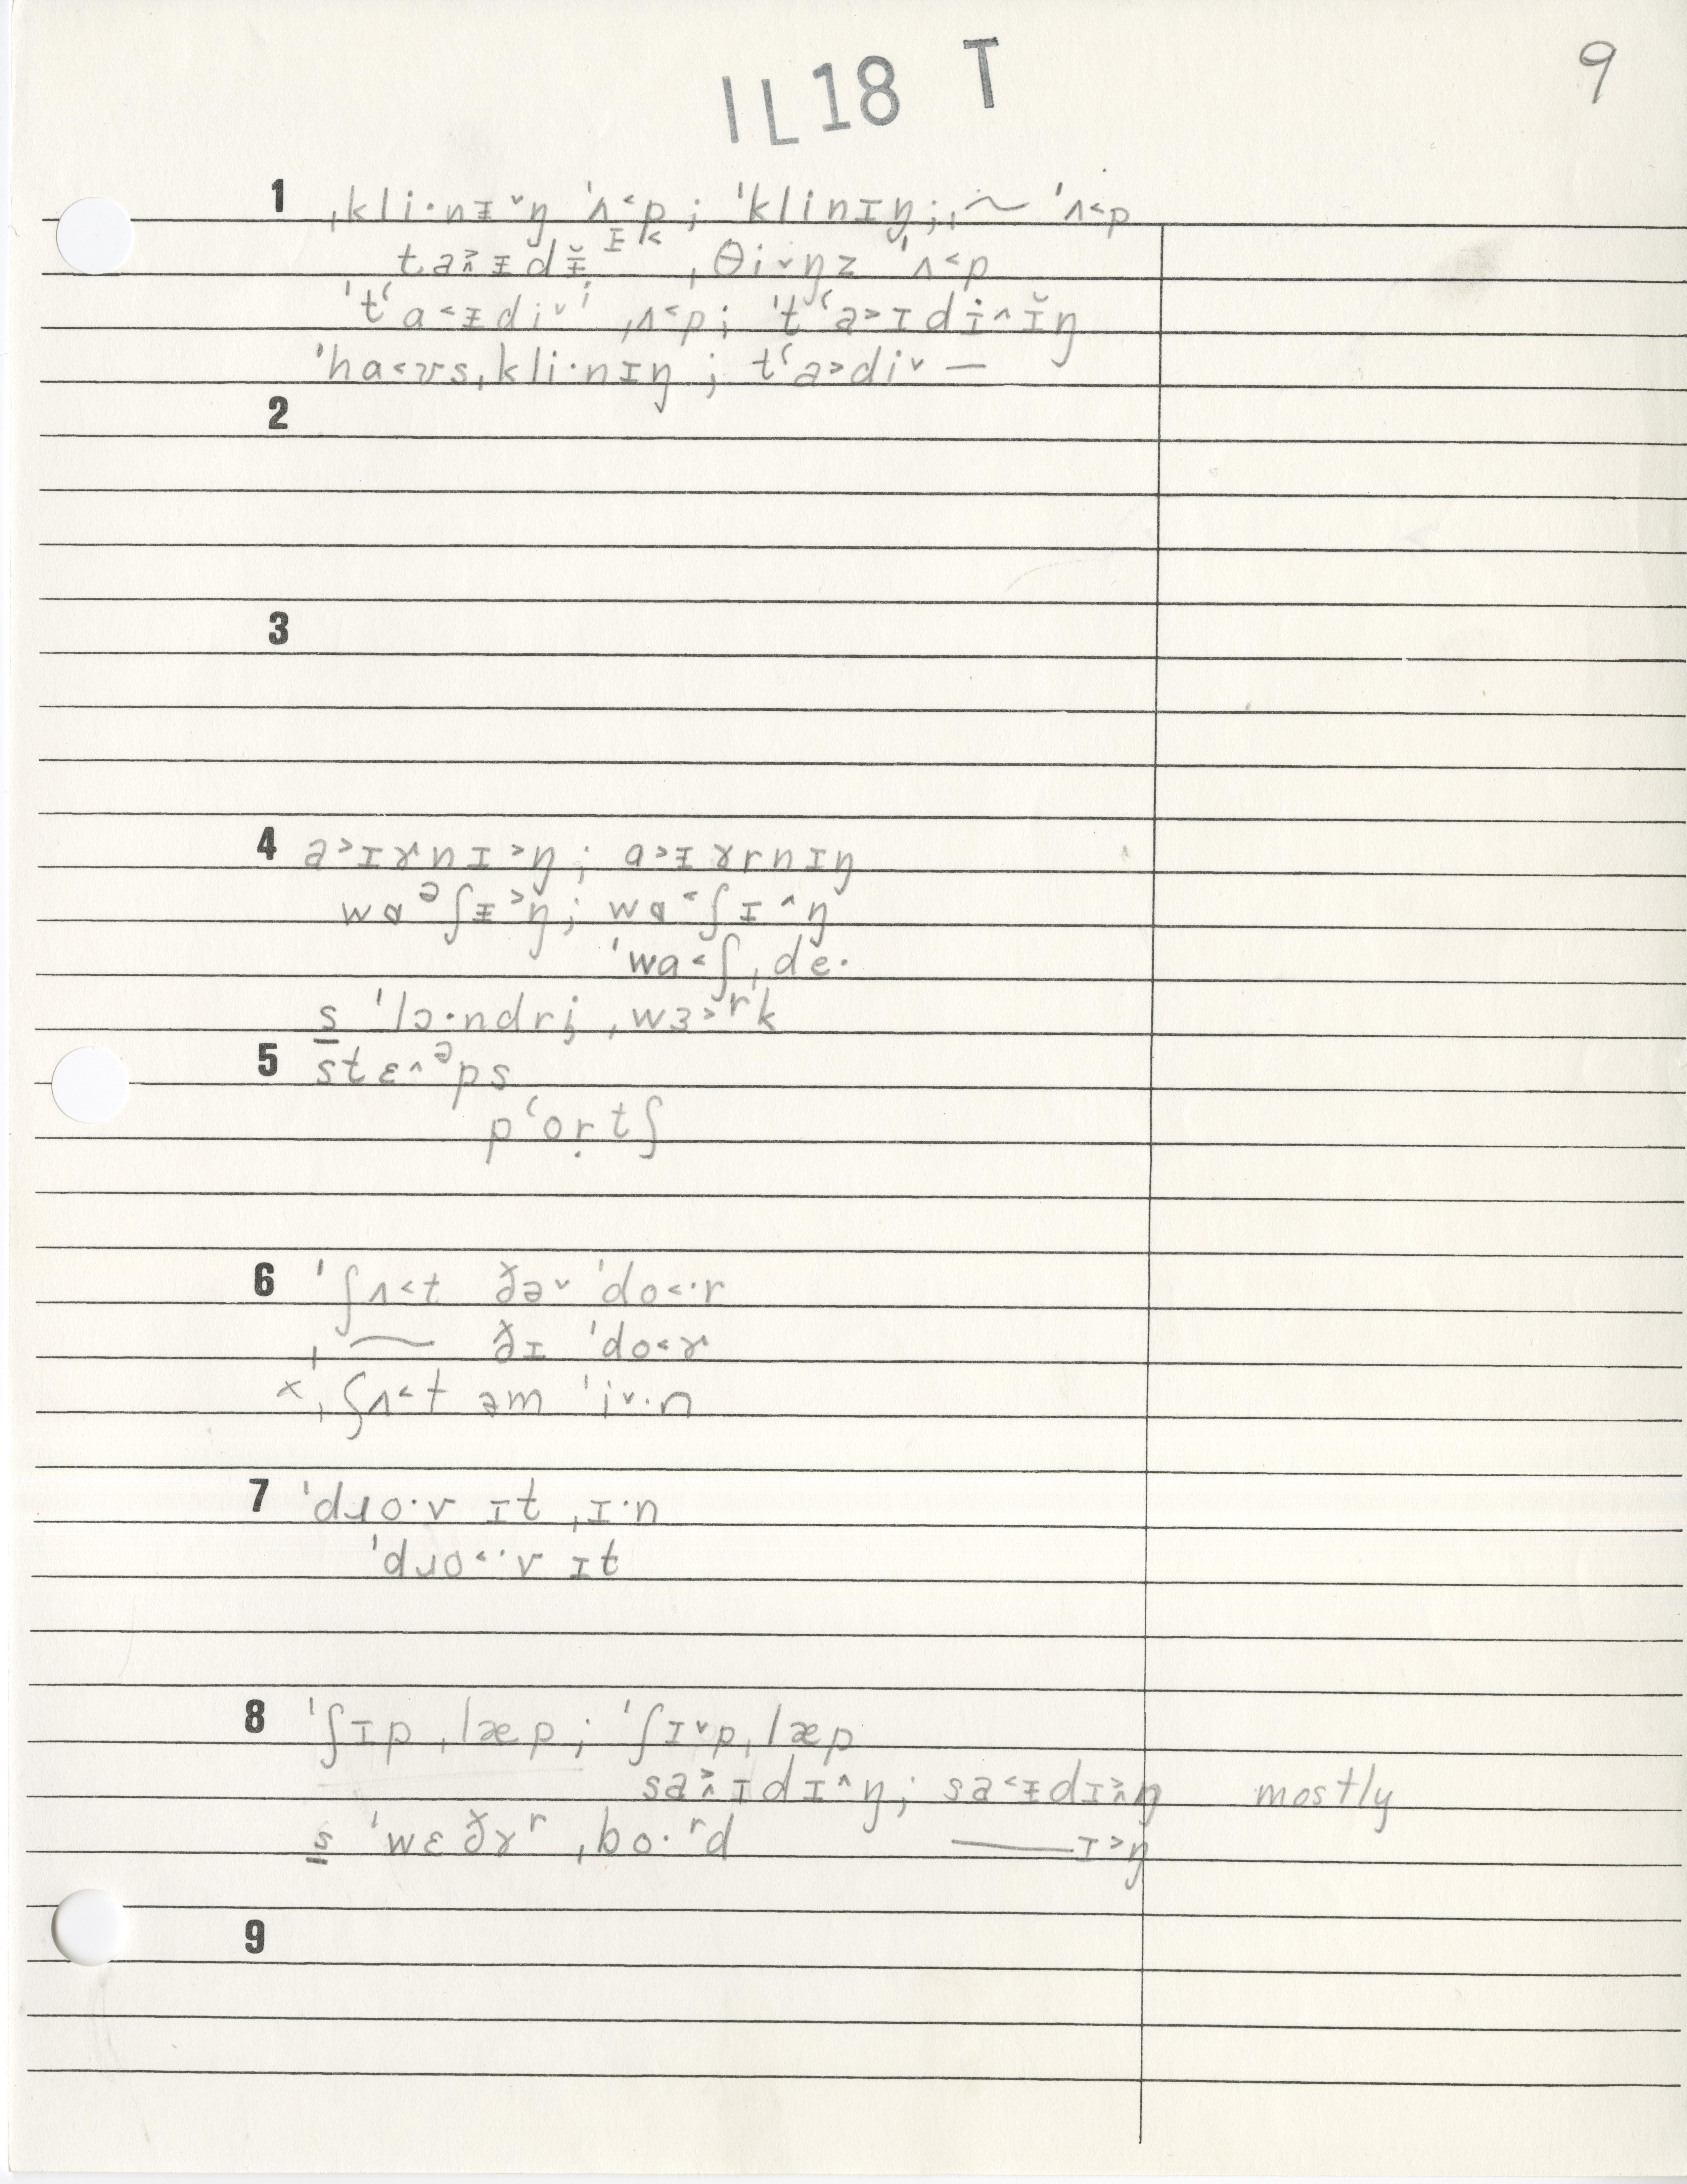 IL18 T
9
1 ˌkli·nᵻ˅ŋ ˈʌ˂p; ˈklinɪŋ; ˌ~ ˈʌ˂p
ˌθi˅ŋz ˈʌ˂p
ˈtʻa˂ᵻdi˅ⁱ ˌʌ˂p; ˈtʻa˃ɪdi˄ɪ̆ŋ
ˈha˂ʊs ˌkli·nɪŋ; tʻa˃di˅ —
2
3
4 a˃ɪɤnɪ˃ŋ; a˃ᵻɤrnɪŋ
wɑᵊʃᵻ˃ŋ; wɑ˂ʃɪ˄ŋ
ˈwa˂ʃˌde·
s ˈlɔ·ndri ˌwɜ˃ʳk
5 stɛ˄ᵊps
pʻoṛtʃ
6 ˈʃʌ˂t ðə˅ ˈdo˂·r
ˌ~ ðɪ ˈdo˂ɤ
x ˌʃʌ˂t əm ˈi˅·n
7 ˈdɹo·v ɪt ˌɪ·n
ˈdɹo˂·v ɪt
8 ˈʃɪp ˌlæp; ˈʃɪ˅p ˌlæp
saɪdɪ˄ŋ; sa˂ᵻdɪŋ mostly
s ˈwɛðɤʳ ˌbo·ʳd —ɪ˃ŋ
9